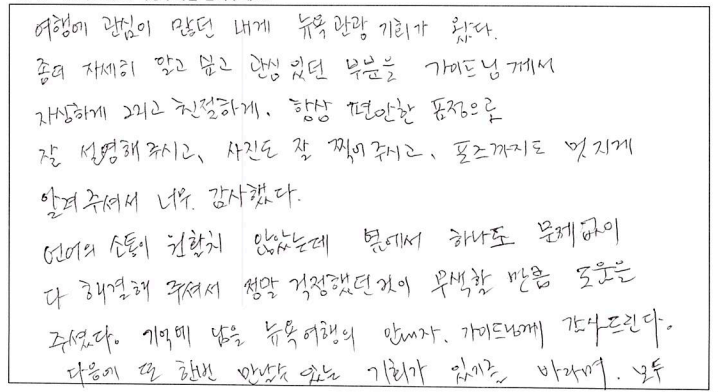 여행에 관심이 많던 내게 뉴욕관광 기회가 왔다.
좀더 자세히 알고 싶고 관심있던 부분을 가이드님께서
자상하게 그리고 친절하게. 항상 편안한 표정으로
잘 설명해주시고, 사진도 잘 찍어주시고, 포즈까지도 멋지게
알려주셔서 너무 감사했다.
언어의 소통이 원할치 않았는데 옆에서 하나도 문제없이
다 해결해 주셔서 정말 걱정했던것이 무색할 만큼 도움을
주셨다. 기억에 남을 뉴욕여행의 안내자. 가이드님께 감사드린다.
다음에 또 한번 만날수 있는 기회가 있기를 바라며. 모두